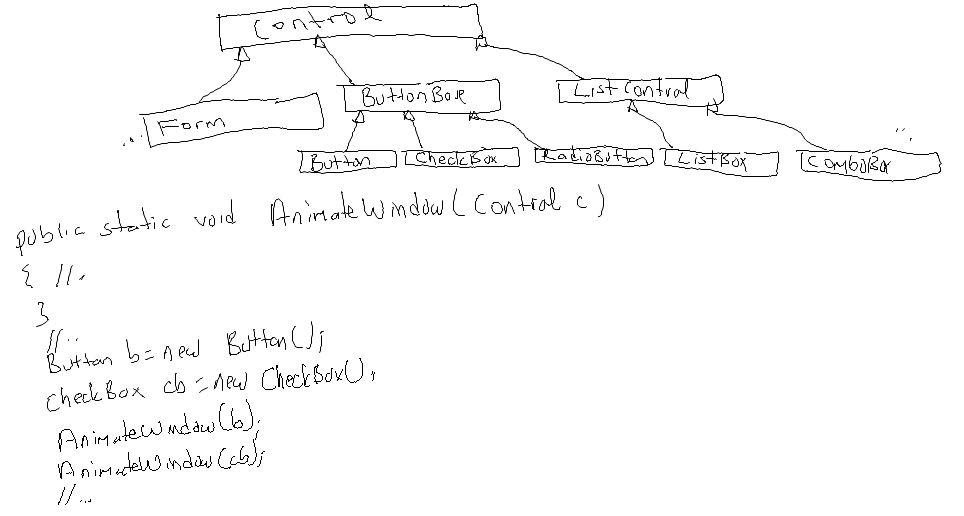 Control
ButtonBase
ListControl
Form
...
...
Button
CheckBox
RadioButton
ListBox
ComboBox
public static void AnimateWindow(Control c)
{ //.
}
//...
Button b = new Button();
CheckBox cb = new CheckBox();
AnimateWindow(b);
AnimateWindow(cb);
//...